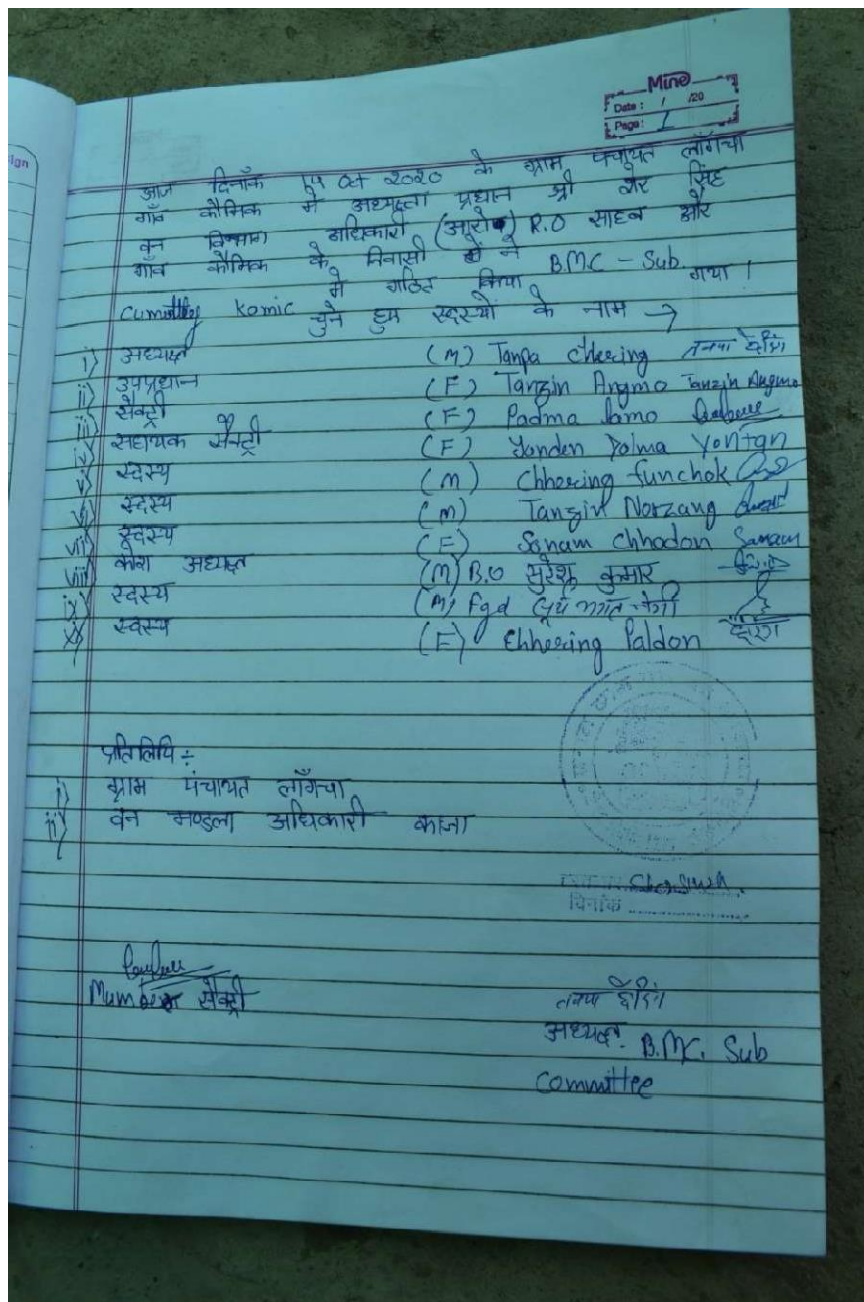 Mine
Date : / /20
Page: 1
आज दिनाँक Oct 2020 के ग्राम पंचायत लाँगचा
गाँव कौमिक में अध्यक्षता प्रधान श्री शेर सिंह
वन विभाग अधिकारी R.O साहब और
गाँव कौमिक के निवासी ने B.M.C - Sub.
में गठित किया गया ।
Komic चुने हुए सदस्यों के नाम →
i) अध्यक्ष (M) Tanpa Chhering
ii) उपप्रधान (F) Tanzin Angmo Tanzin Angmo
iii) सैक्ट्री (F) Padma Lamo
सहायक सैक्ट्री (F) Yonden Dolma Yontan
v) सदस्य (M) Chhering funchok
vi) सदस्य (M) Tanzin Norzang
vii) सदस्य (F) Sonam Chhodon Sanam
viii) अध्यक्ष (M) B.O सुरेश कुमार
ix) सदस्य (M) Fgd
x) सदस्य (F) Chhering Paldon
प्रतिलिपि ÷
i) ग्राम पंचायत लाँगचा
ii) वन मण्डला अधिकारी काजा
दिनांक
सैक्ट्री
अध्यक्ष. B.M.C. Sub
Committee